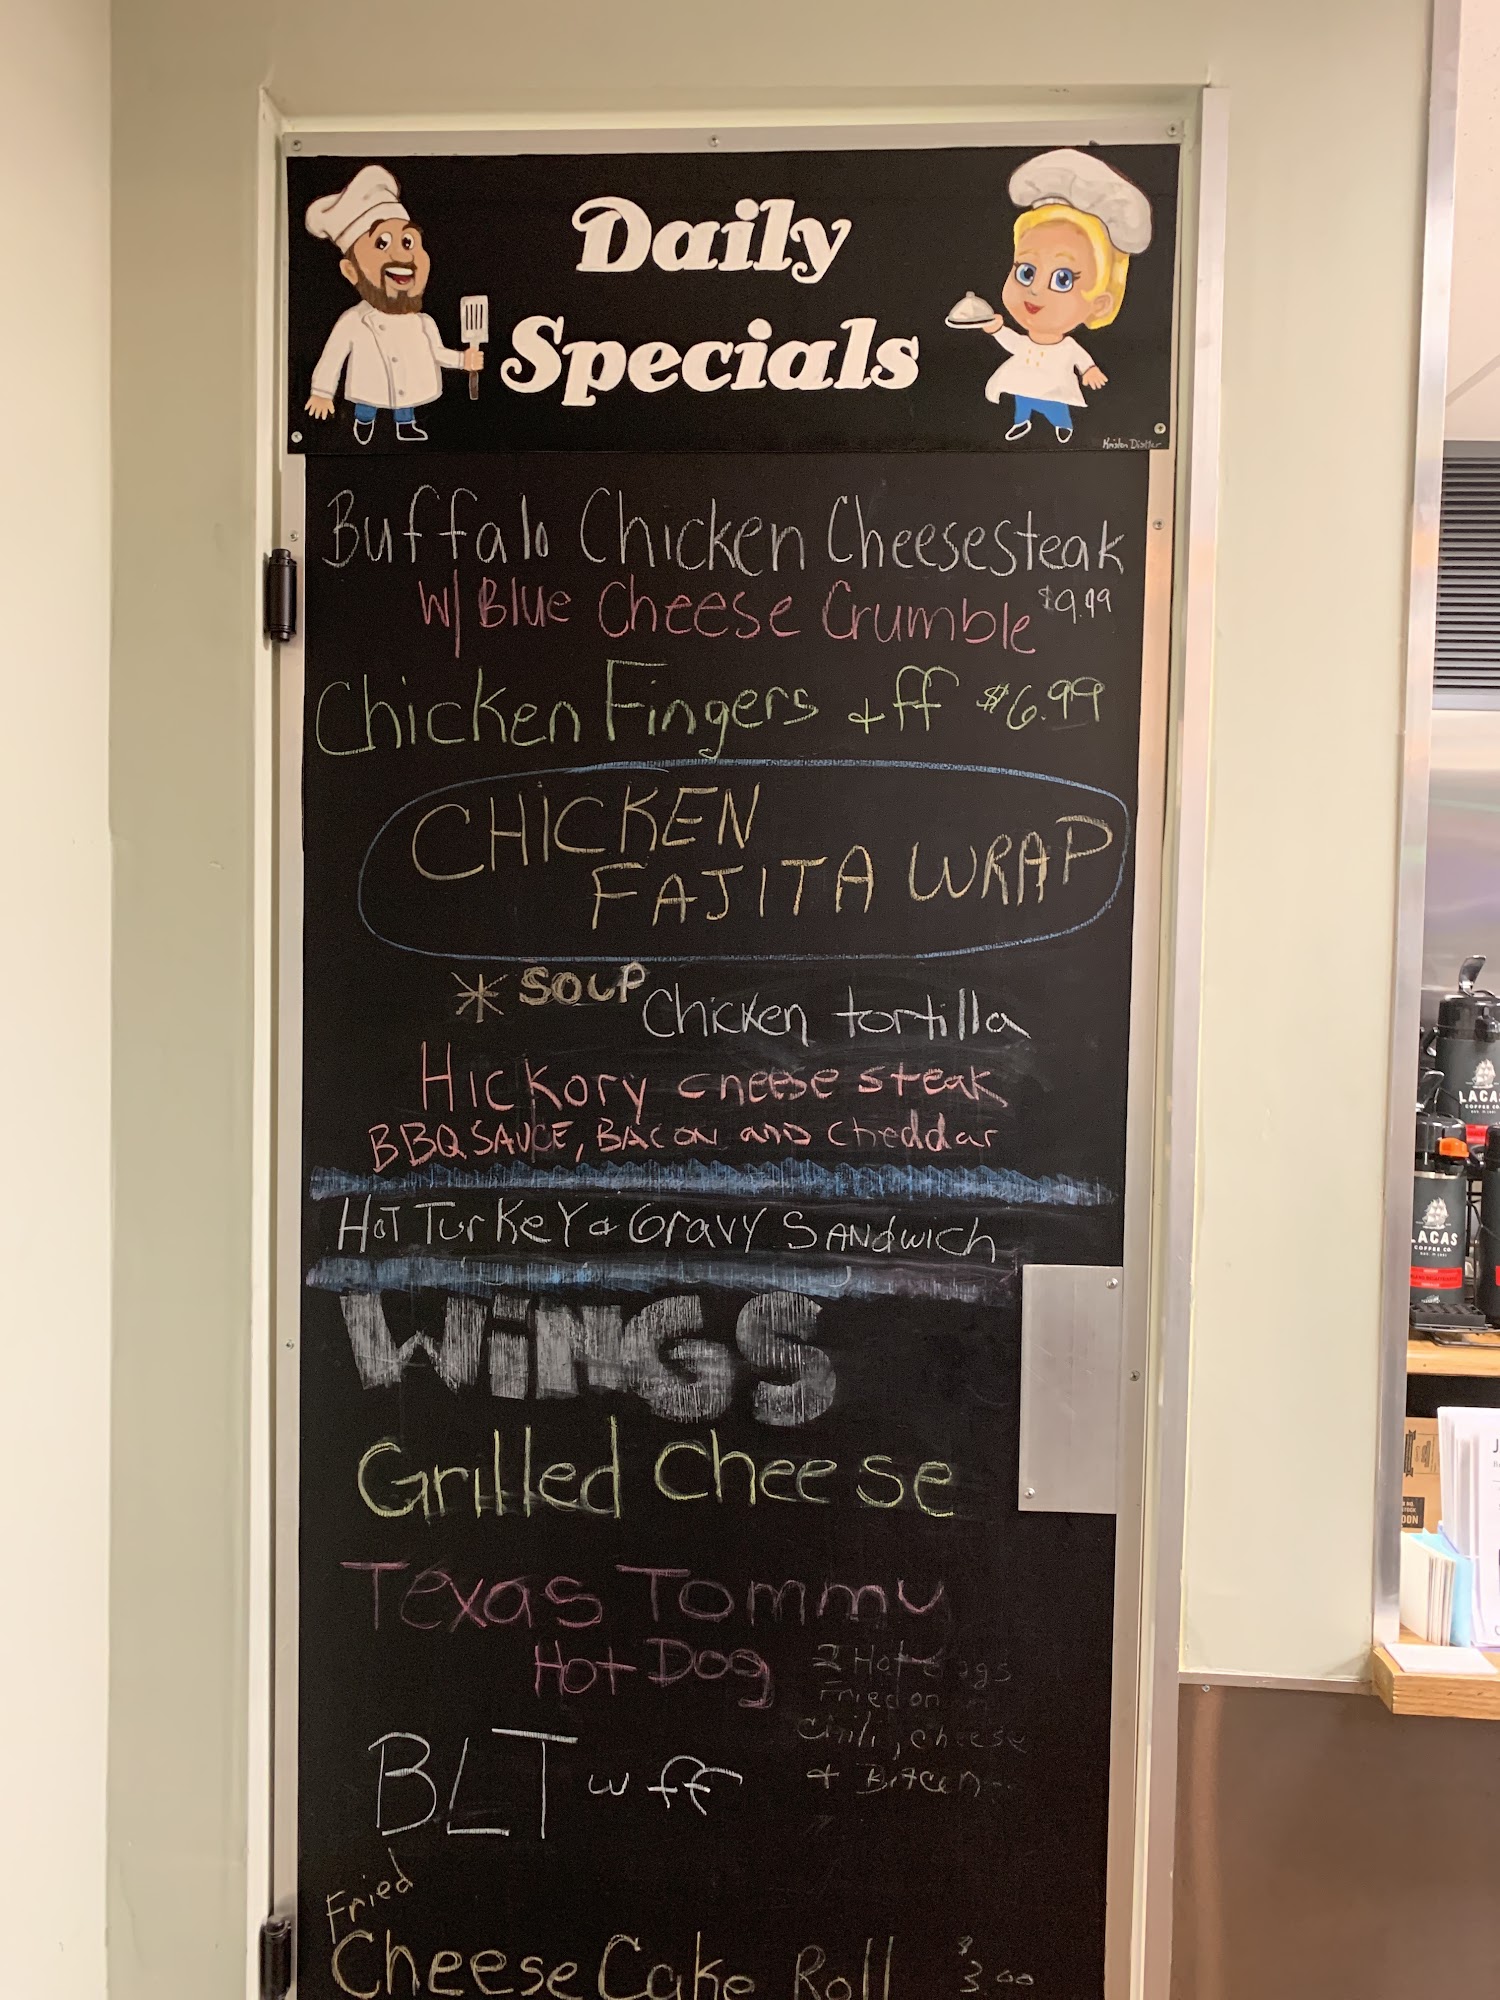 Daily
Specials
Kristen Distler
Buffalo Chicken Cheesesteak
W/ Blue Cheese Crumble $9.99
Chicken Fingers + ff $6.99
CHICKEN
FAJITA WRAP
* SOUP Chicken tortilla
Hickory cheese steak
BBQ SAUCE, BACON and cheddar
Hot Turkey & Gravy Sandwich
WiNGS
Grilled Cheese
Texas Tommy
Hot Dog
2 Hot dogs
Fried on
Chili, cheese
+ Bacon
BLT w ff
Fried
Cheese Cake Roll $3.00
LACAS
COFFEE CO.
LACAS
COFFEE CO.